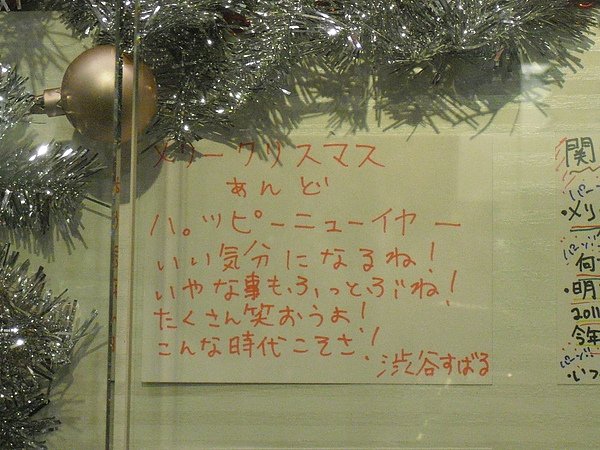 メリークリスマス
あんど
ハ。ッピーニューイヤー
いい気分になるね!
いやな事もふっとぶね!
たくさん笑おうよ!
こんな時代こそさ!
渋谷すばる
関
メリ
何
明
2011
今年
いつ